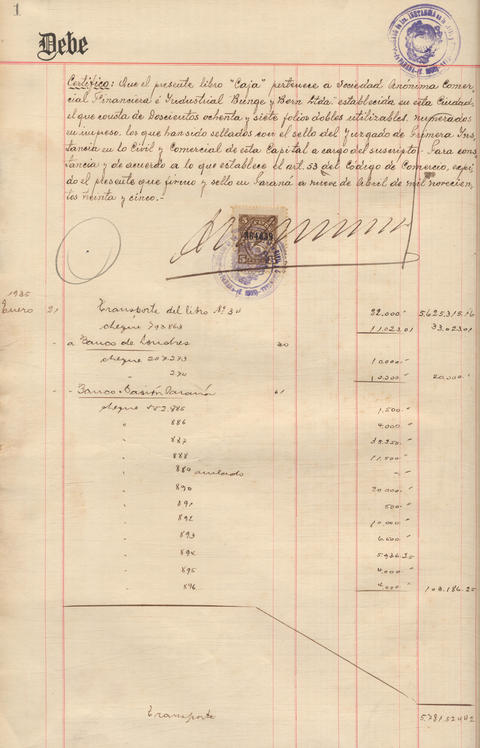 1
Debe
Certifico: Que el presente libro "Caja" pertenece a Sociedad Anónima Comer-
cial, Financiera é Industrial Bunge y Born Ltda. establecida en esta Ciudad,
el que consta de Doscientos ochenta y siete folios dobles utilizables, numerados
en impreso, los que han sido sellados con el sello del Juzgado de Primera Ins-
tancia en lo Civil y Comercial de esta Capital a cargo del suscripto.- Para cons-
tancia y de acuerdo a lo que establece el art. 53 del Código de Comercio, expi-
do el presente que firmo y sello en Paraná a nueve de Abril de mil novecien-
tos treinta y cinco.-
1935
Enero 21 Transporte del libro Nº 34 22.000." 5.625.315.16
cheque 793.863 11.023.01 33.023.01
- a Banco de Londres 20
cheque 207.273 10.000."
" 274 10.000." 20.000."
- " Banco Italia Paraná 61
cheque 552.885 1.500."
" 886 4.000."
" 887 38.250."
" 888 11.500."
" 889 anulado " "
" 890 20.000."
" 891 500."
" 892 10.000."
" 893 6.600."
" 894 5.936.25
" 895 4.000."
" 896 4.000."
Transporte